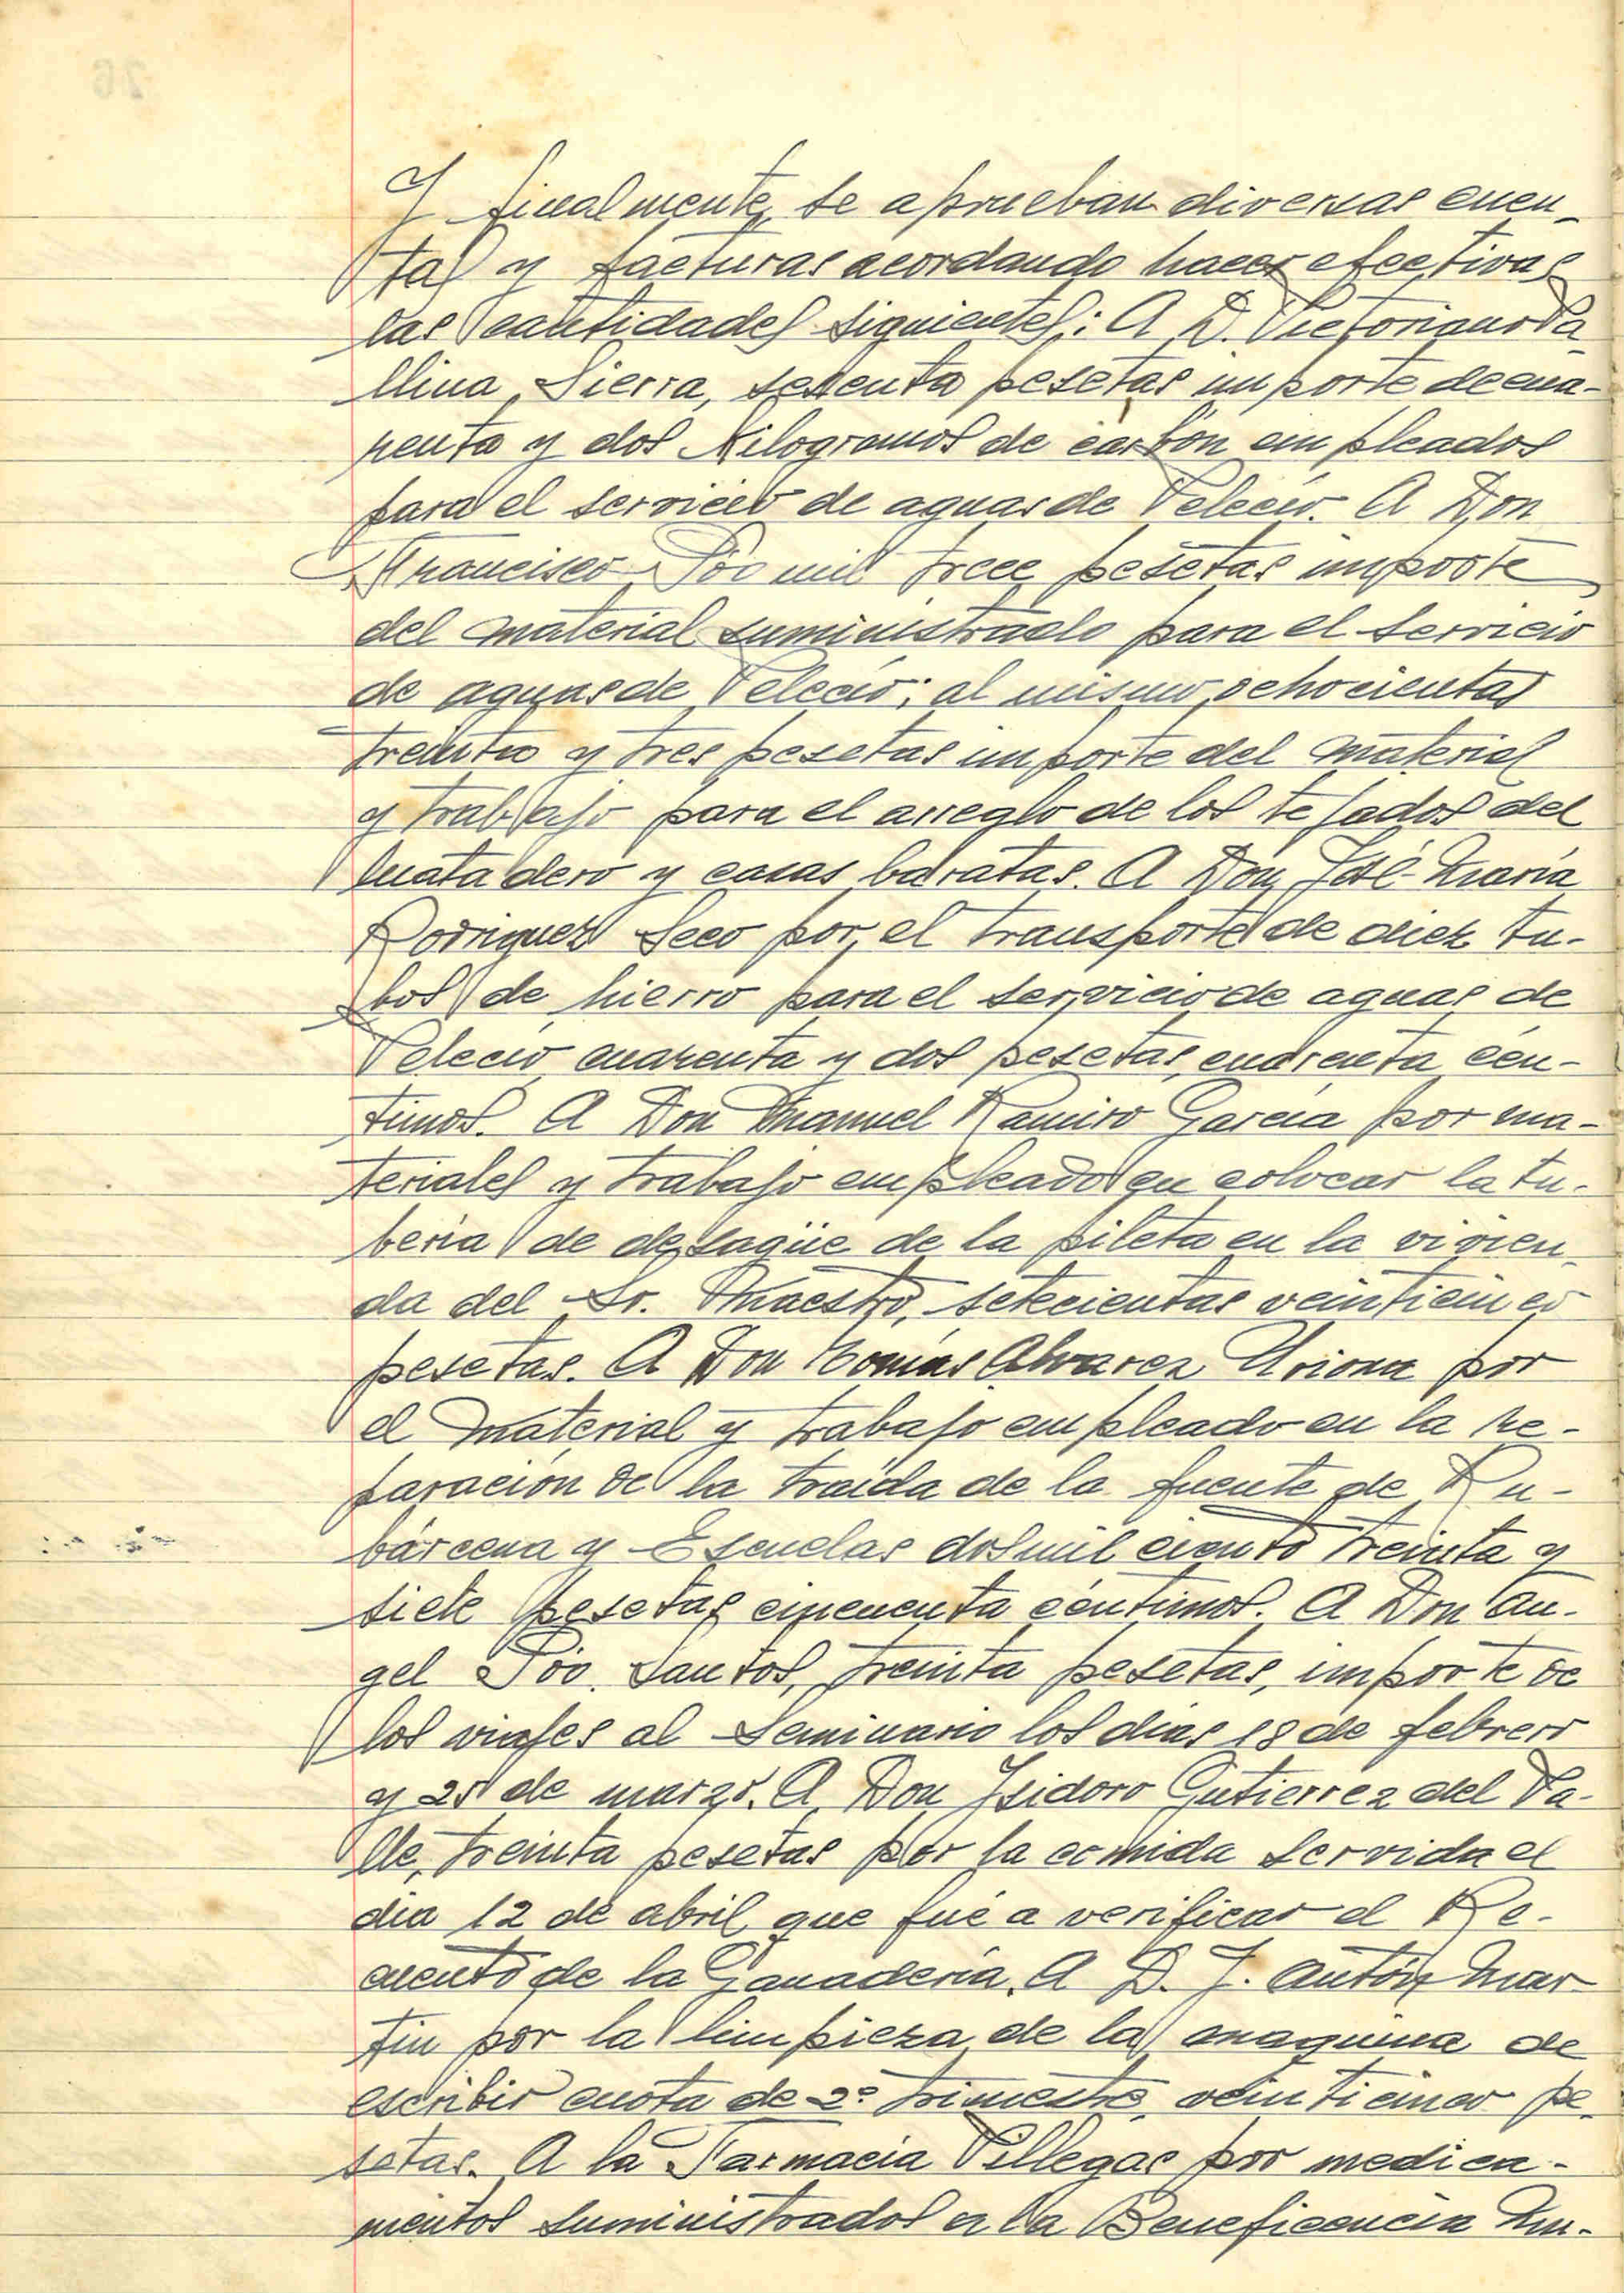 Y finalmente, se aprueban diversas cuen-
tas y facturas acordando hacer efectivas
las cantidades siguientes: A D. Victoriano Va-
llina Sierra, setenta pesetas importe de cua-
renta y dos Kilogramos de carbón empleados
para el servicio de aguas de Pelecio. A Don
Francisco Póo mil trece pesetas importe
del material suministrado para el servicio
de aguas de Pelecio; al mismo ochocientas
treinta y tres pesetas importe del material
y trabajo para el arreglo de los tejados del
matadero y casas baratas. A Don José-María
Rodriguez Seco por el transporte de diez tu-
bos de hierro para el servicio de aguas de
Pelecio cuarenta y dos pesetas, cuarenta cén-
timos. A Don Manuel Ramiro García por ma-
teriales y trabajo empleado en colocar la tu-
bería de desagüe de la pileta en la vivien-
da del Sr. Maestro, setecientas veinticinco
pesetas. A Don Tomás Alvarez Uriona por
el material y trabajo empleado en la re-
paración de la traída de la fuente de Ru-
bárcena y Escuelas dosmil ciento treinta y
siete pesetas cincuenta céntimos. A Don An-
gel Póo Santos, treinta pesetas, importe de
los viajes al Seminario los días 18 de febrero
y 25 de marzo. A Don Isidoro Gutierrez del Va-
lle, treinta pesetas por la comida servida el
día 12 de abril que fué a verificar el Re-
cuento de la Ganadería. A D. J. Antón Mar-
tin por la limpieza de la maquina de
escribir cuota de 2º trimestre, veinticinco pe-
setas. A la Farmacia Villegas por medica-
mentos suministrados a la Beneficencia Mu-
26